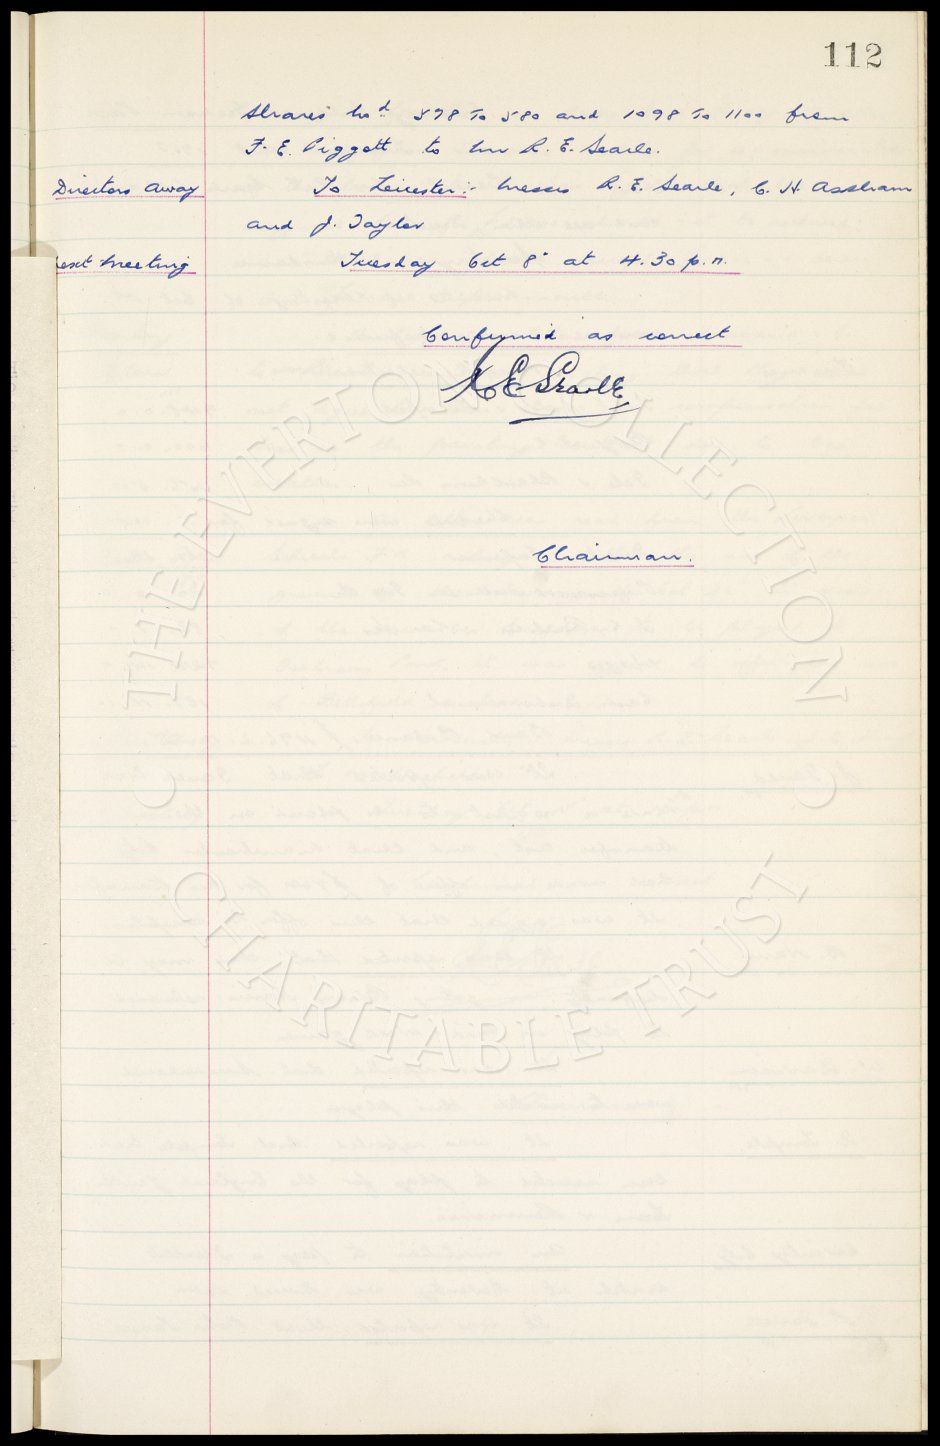 112
Shares No^d 578 To 580 and 1098 To 1100 from
F. E. Piggott to Mr R. E. Searle.
Directors Away To Leicester:- Messrs R. E. Searle, C. H Askham
and J. Taylor
Next Meeting Tuesday Oct 8" at 4.30 p.m.
Confirmed as correct
R E Searle
Chairman.
THE EVERTON COLLECTION
CHARITABLE TRUST